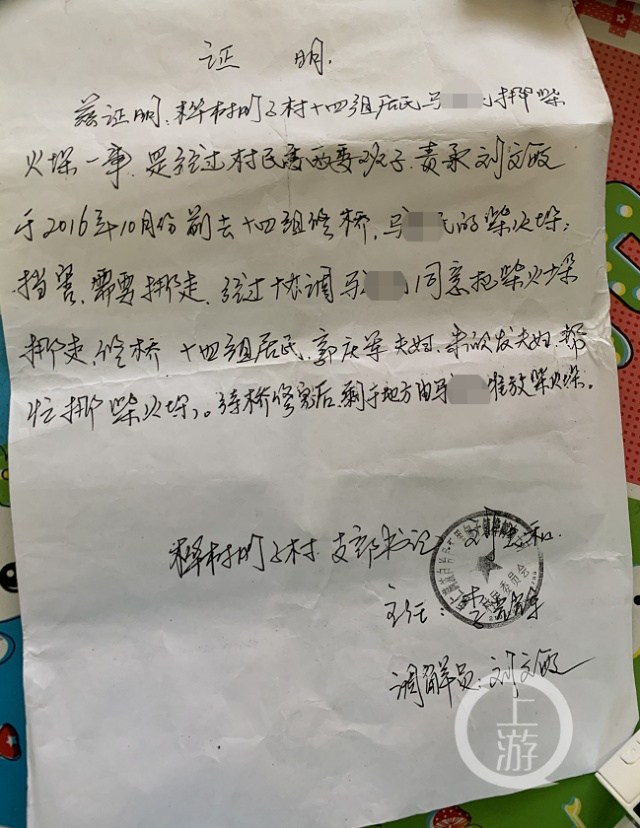 证 明
兹证明:桦树附子村十四组居民马民挪柴
火垛一事,是经过村民委两委班子,责承刘文
于2016年10月份前去十四组修桥,马民的柴火垛
挡害,需要挪走,经过协调马同意把柴火垛
挪走,修桥 十四组居民,郭庆军夫妇,发夫妇,帮
忙挪柴火垛,。待桥修完后,剩于地方由马堆放柴火垛。
村 支部书记
委员会
主任:李
调解员:刘文
上游